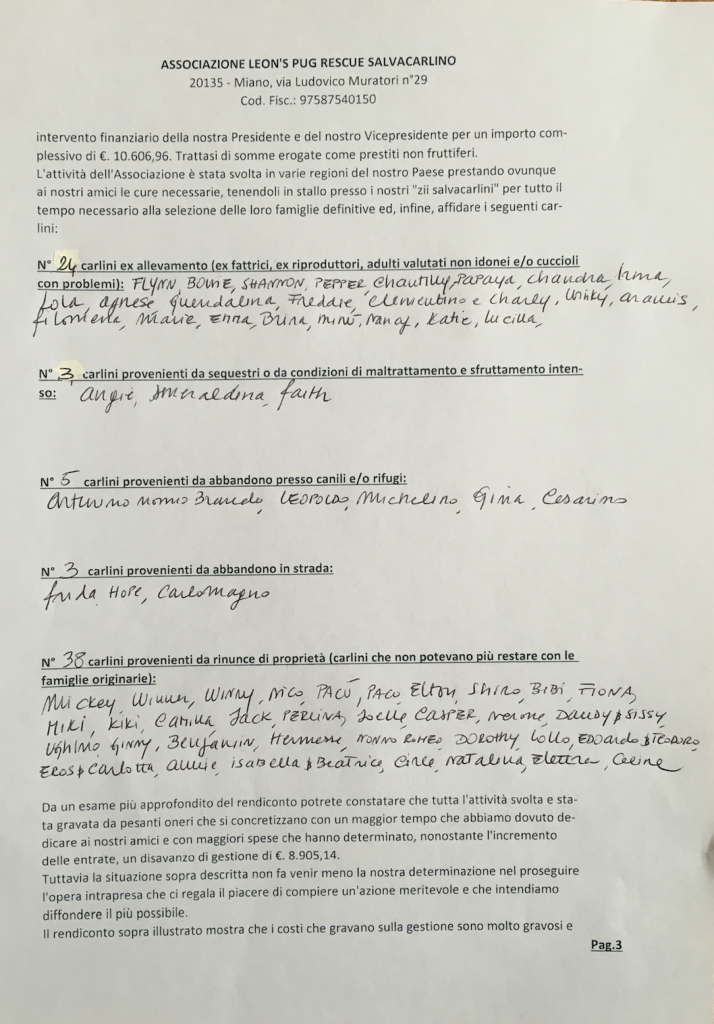 ASSOCIAZIONE LEON'S PUG RESCUE SALVACARLINO
20135 - Miano, via Ludovico Muratori n°29
Cod. Fisc.: 97587540150
intervento finanziario della nostra Presidente e del nostro Vicepresidente per un importo com-
plessivo di €. 10.606,96. Trattasi di somme erogate come prestiti non fruttiferi.
L'attività dell'Associazione è stata svolta in varie regioni del nostro Paese prestando ovunque
ai nostri amici le cure necessarie, tenendoli in stallo presso i nostri "zii salvacarlini" per tutto il
tempo necessario alla selezione delle loro famiglie definitive ed, infine, affidare i seguenti car-
lini:
N° 24 carlini ex allevamento (ex fattrici, ex riproduttori, adulti valutati non idonei e/o cuccioli
con problemi): FLYNN, BOWIE, SHANNON, PEPPER Chantilly, Papaya, Chandra, Irma,
Lola, agnese guendalina, Freddie, Clementino e Charly, Winky, aramis,
filomena, Marie, Emma, Brina, Minù, Nancy, Katie, Lucilla,
N° 3 carlini provenienti da sequestri o da condizioni di maltrattamento e sfruttamento inten-
so: angie, smeraldina, faith
N° 5 carlini provenienti da abbandono presso canili e/o rifugi:
arturino nonno Brando, LEOPOLDO, Michelino, Gina, Cesarino
N° 3 carlini provenienti da abbandono in strada:
frida, HOPE, CarloMagno
N° 38 carlini provenienti da rinunce di proprietà (carlini che non potevano più restare con le
famiglie originarie):
Mickey, Winner, WINNY, NICO, PACÙ, PACO, Elton, Shiro, BIBI, FIONA,
MIKI, kiki, Camilla, Jack, PERLINA, Joelle, CASPER, Nerone, DANDY & SISSY
Ughino, GINNY, Benjamin, Hermesse, NONNO ROMEO, DOROTHY, Lollo, EDOardo & TEODORO,
EROS & Carlotta, annie, isabella & Beatrice, Circe, Natalina, Elettra, Celine
Da un esame più approfondito del rendiconto potrete constatare che tutta l'attività svolta e sta-
ta gravata da pesanti oneri che si concretizzano con un maggior tempo che abbiamo dovuto de-
dicare ai nostri amici e con maggiori spese che hanno determinato, nonostante l'incremento
delle entrate, un disavanzo di gestione di €. 8.905,14.
Tuttavia la situazione sopra descritta non fa venir meno la nostra determinazione nel proseguire
l'opera intrapresa che ci regala il piacere di compiere un'azione meritevole e che intendiamo
diffondere il più possibile.
Il rendiconto sopra illustrato mostra che i costi che gravano sulla gestione sono molto gravosi e
Pag.3